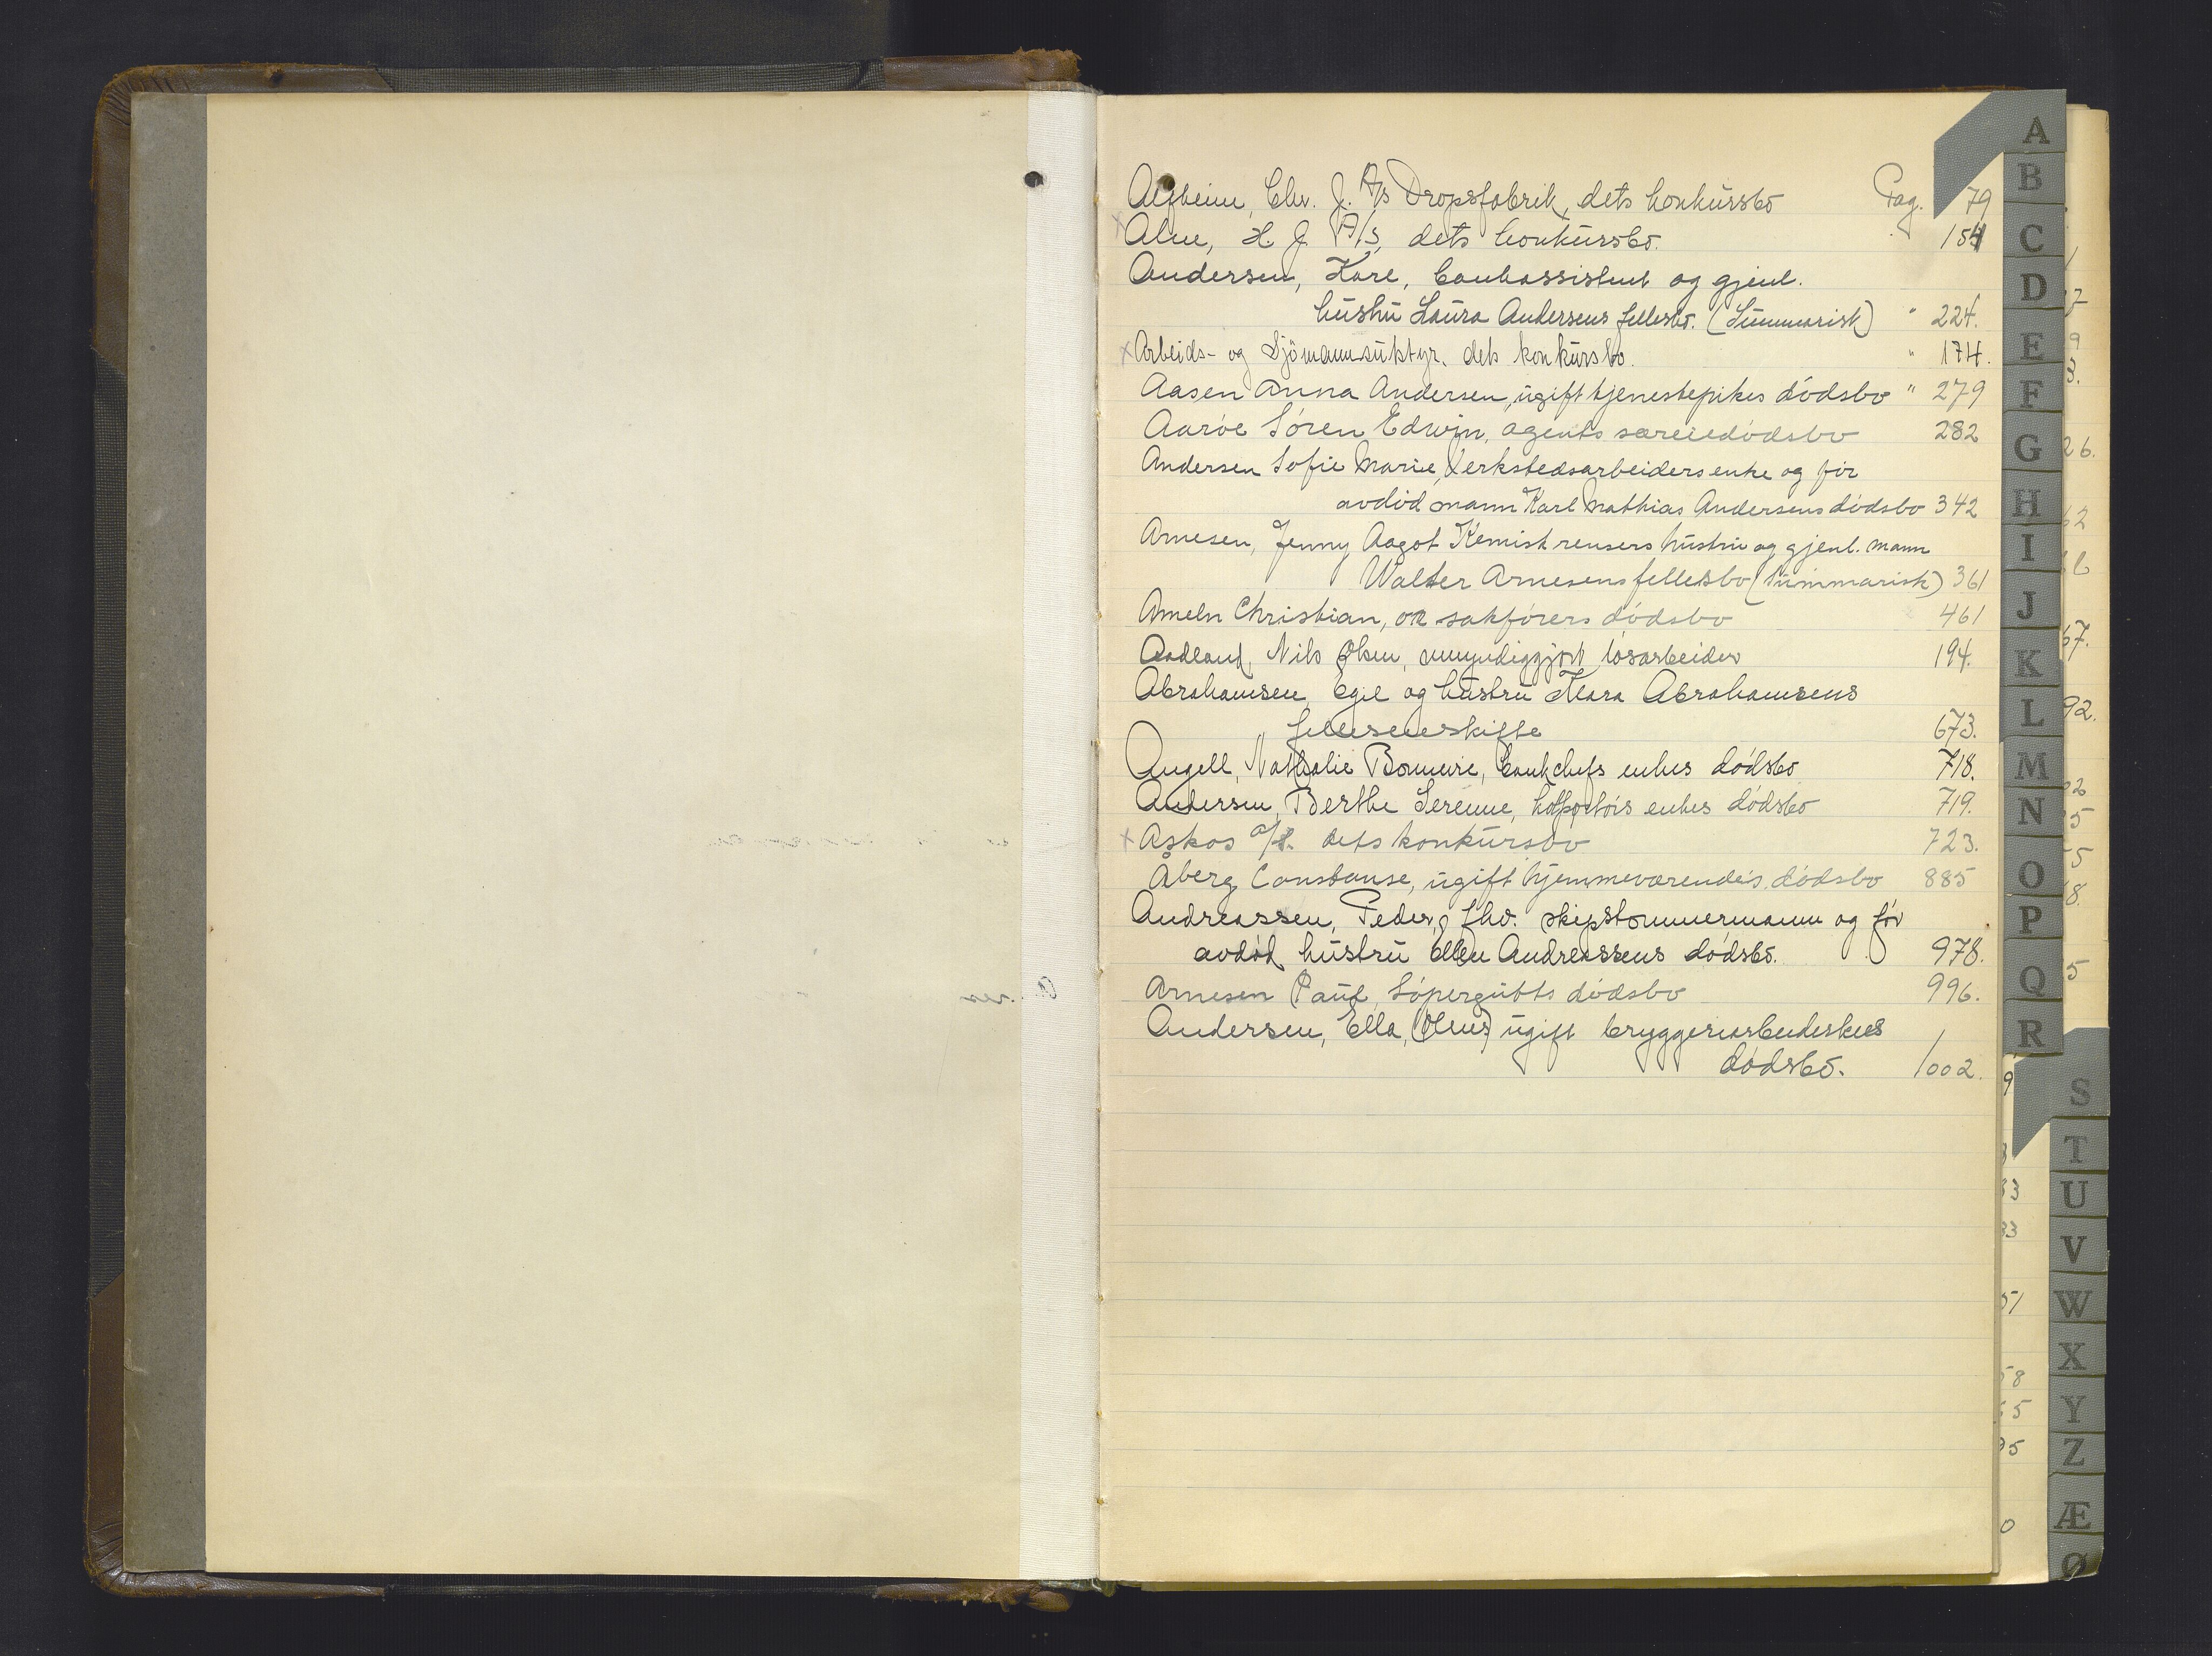 Alfheim, Chr. J. A/s Dropsfabrik, dets konkursbo Pag. 79
x Alm, H. J. A/S, dets konkursbo. 154
Andersen, Kare, bankassistent og gjenl.
hustru Laura Andersens fellesbo. (Summarisk) " 224.
x Arbeids- og Sjömannsutstyr. dets konkursbo. " 174.
Aasen Anna Andersen, ugift tjenestepikes dödsbo " 279
Aaröe Sören Edwin, agents særeiedödsbo 282
Andersen Sofie Marie, Verkstedsarbeiders enke og för
avdöd mann Karl Mathias Andersens dödsbo 342
Arnesen, Jenny Aagot Kemisk rensers hustru og gjenl. mann
Walter Arnesens fellesbo (Summarisk) 361
Ameln Christian, or sakförers dödsbo 461
Aadland, Nils Olsen, umyndiggjort lösarbeider 194.
Abrahamsen, Egil og hustru Mara Abrahamsens
felleseieskifte 673.
Angell, Nathalie Bomwie, bankchefs enkes dödsbo 718.
Andersen, Berthe Serenne, hotfortöirs enkes dödsbo 719.
x Askos a/s. dets konkursbo 723.
Åberg Constanse, ugift hjemmeværendes dödsbo 885
Andreassen, Peder, fhv. skipstømmermann og för
avdöd hustru Ellen Andreassens dödsbo. 978.
Arnesen Paul, Löpergutts dödsbo 996.
Andersen, Ella, (Olene) ugift bryggeriarbeiderskes
dödsbo. 1002.
A
B
C
D
E
F
G
H
I
J
K
L
M
N
O
P
Q
R
S
T
U
V
W
X
Y
Z
Æ
Ø